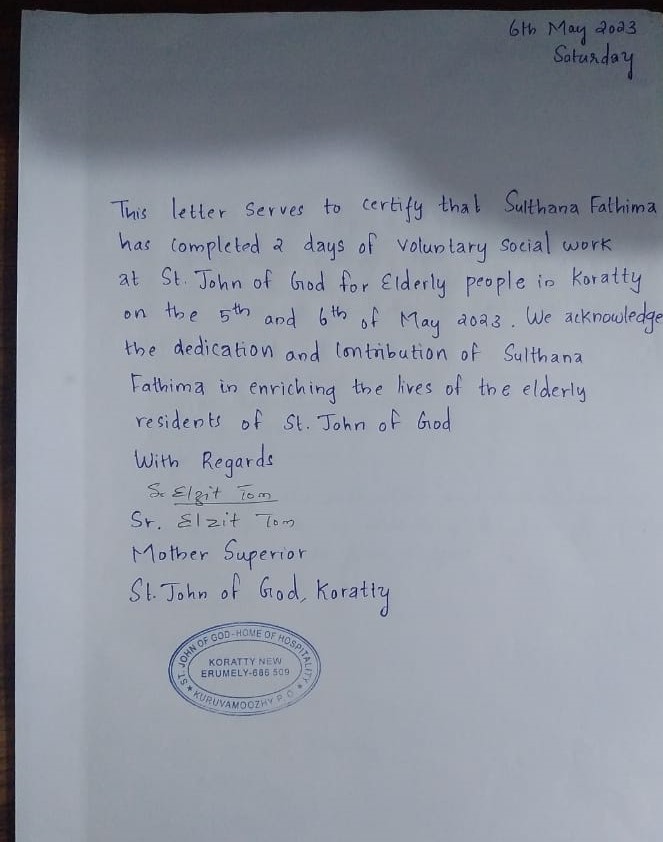 6th May 2023
Saturday
This letter serves to certify that Sulthana Fathima
has completed 2 days of voluntary social work
at St. John of God for Elderly people in Koratty
on the 5th and 6th of May 2023. We acknowledge
the dedication and contribution of Sulthana
Fathima in enriching the lives of the elderly
residents of St. John of God
With Regards
Sr Elzit Tom
Sr. Elzit Tom
Mother Superior
St. John of God, Koratty
ST. JOHN OF GOD-HOME OF HOSPITALITY
KORATTY NEW
ERUMELY-686 509
★ KURUVAMOOZHY P.O. ★